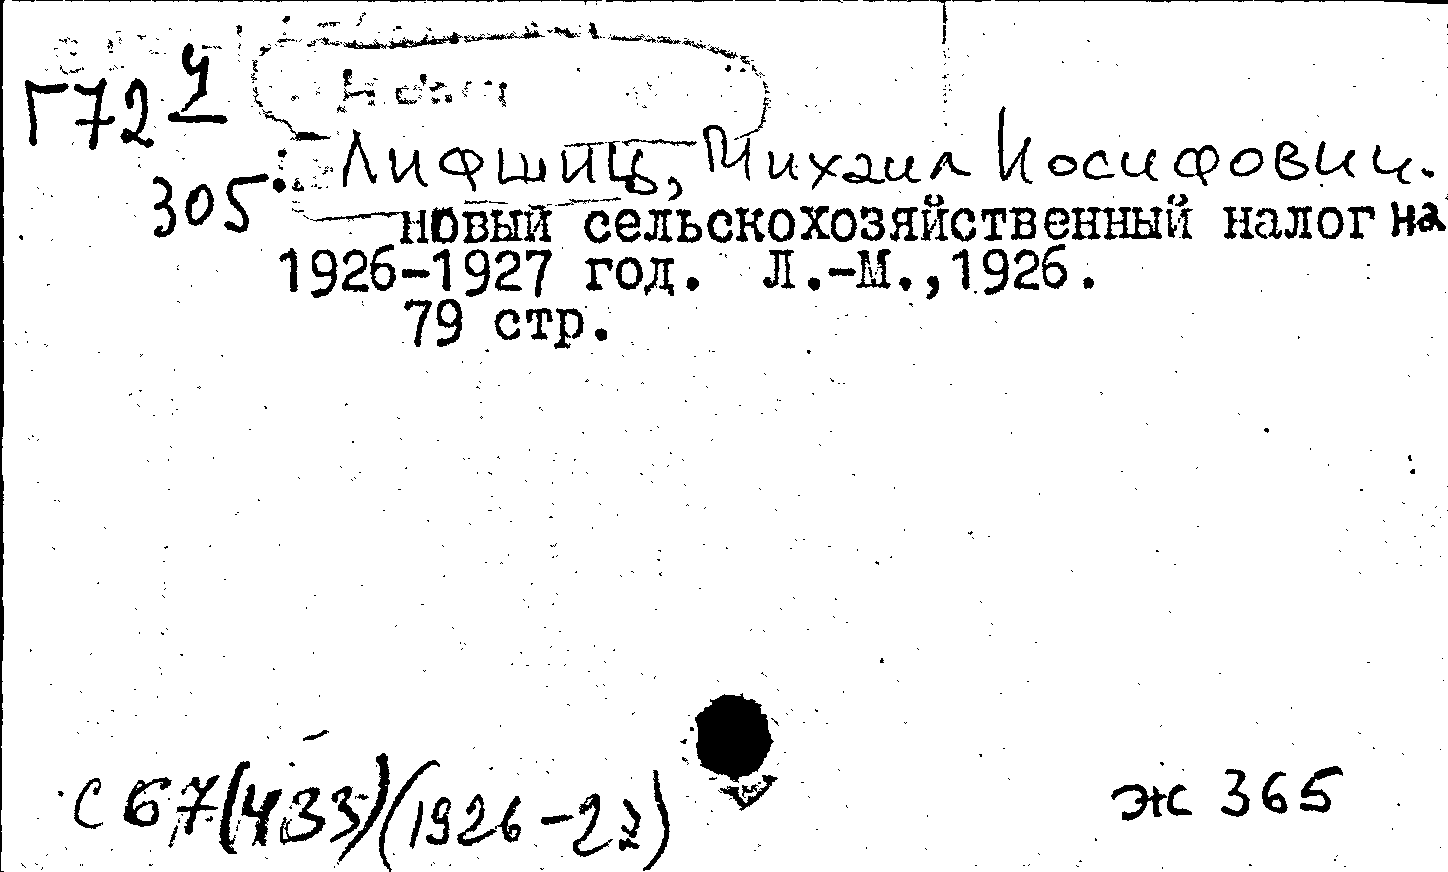 Г72 4
305
Лифшиц, Михаил Иосифович.
новый сельскохозяйственный налог на
1926-1927 год. Л.-М., 1926.
79 стр.
С67(433)(1926-27)
ж 365